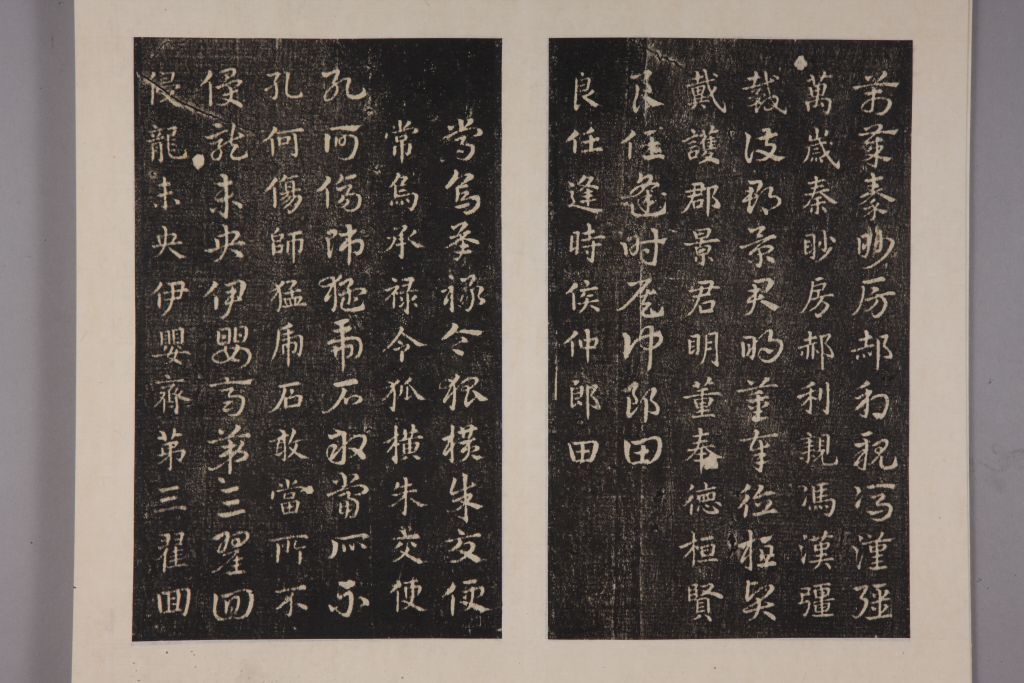 萬歲秦眇房郝利親馮漢彊
萬歲秦眇房郝利親馮漢彊
戴護郡景君明董奉德桓賢
戴護郡景君明董奉德桓賢
良任逢時侯仲郎田
良任逢時侯仲郎田
常烏承祿令狐橫朱交便
常烏承祿令狐橫朱交使
孔何傷師猛虎石敢當所不
孔何傷師猛虎石敢當所不
侵龍未央伊嬰齊第三翟回
侵龍未央伊嬰齊第三翟回